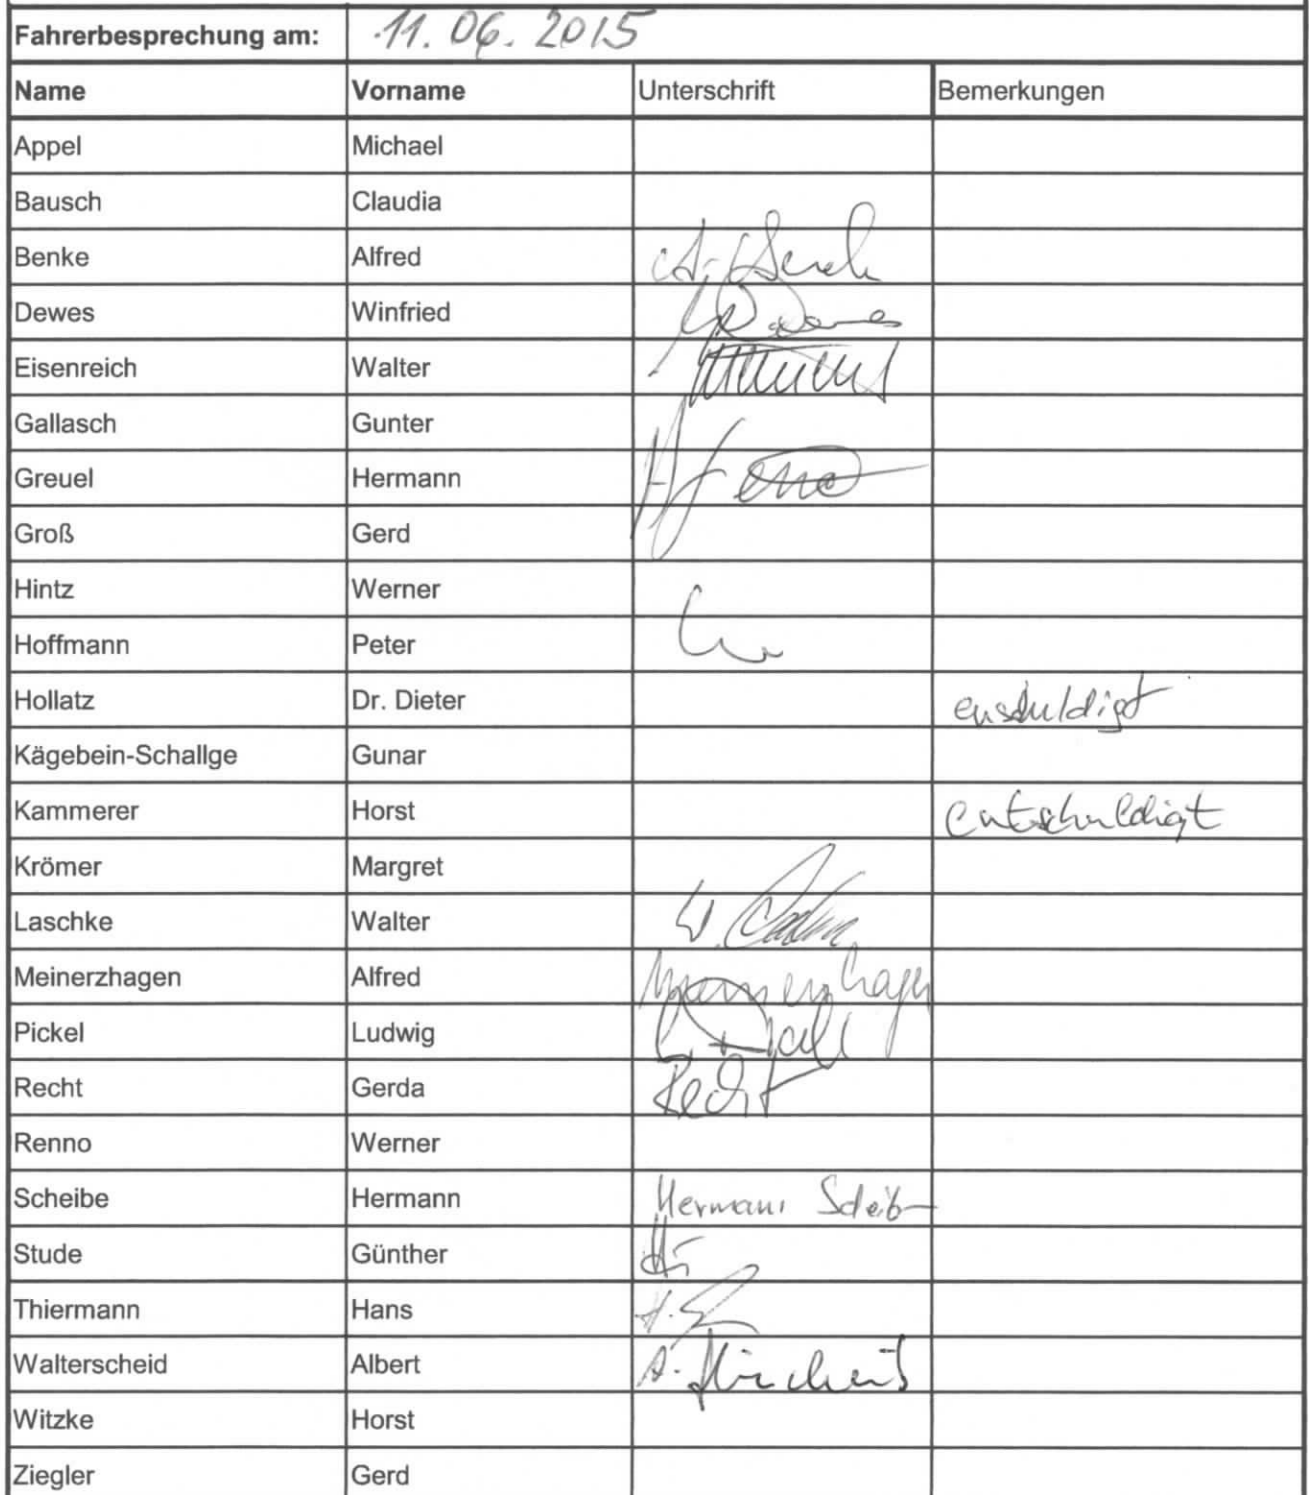 Fahrerbesprechung am: 11.06.2015
Name Vorname Unterschrift Bemerkungen
Appel Michael
Bausch Claudia
Benke Alfred
Dewes Winfried
Eisenreich Walter
Gallasch Gunter
Greuel Hermann
Groß Gerd
Hintz Werner
Hoffmann Peter
Hollatz Dr. Dieter enschuldigt
Kägebein-Schallge Gunar
Kammerer Horst entschuldigt
Krömer Margret
Laschke Walter
Meinerzhagen Alfred
Pickel Ludwig
Recht Gerda Recht
Renno Werner
Scheibe Hermann Hermann
Stude Günther
Thiermann Hans
Walterscheid Albert
Witzke Horst
Ziegler Gerd